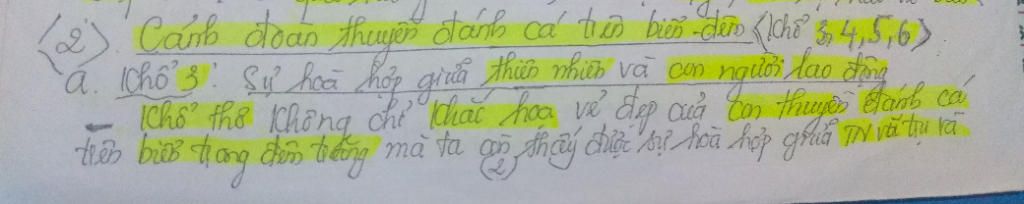 <2>. Cảnh đoàn thuyền đánh cá trên biển-đêm (Khổ 3,4,5,6)
a. Khổ 3: Sự hoà hợp giữa thiên nhiên và con người lao động
- Khổ thơ không chỉ khắc hoạ vẻ đẹp của con thuyền đánh cá
trên biển trong đêm trăng mà ta còn (2) thấy được sự hoà hợp giữa TN vũ trụ và